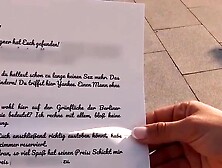 gner hat Euch gefunden!
du hattest schon zu lange keinen Sex mehr. Das
ändern! Du triffst hier Yankee. Einen Mann ohne
wohl hier auf der Grünfläche der Berliner
bedeutet? Ich rechne mit allem, bloß keine
Euch anschließend richtig austoben könnt, habe
zimmer reserviert.
ran, so viel Spaß hat seinen Preis: Schickt mir
zu